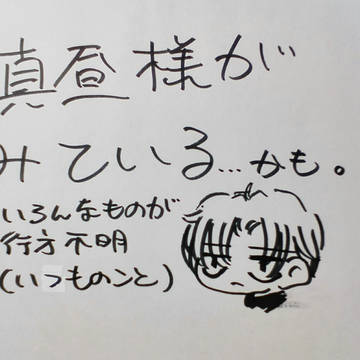 真昼様が
みている…かも。
いろんなものが
行方不明
(いつものこと)